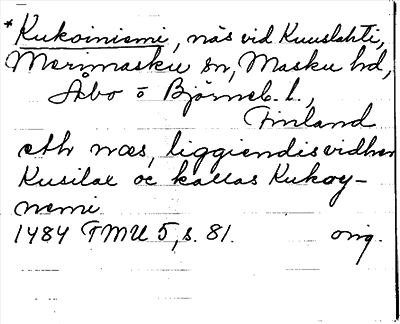 *Kukoiniemi, näs vid Kuuslahti,
Merimasku sn, Masku hd,
Åbo o Björneb. l.,
Finland
eth næs, liggiendis vidher
Kusilax oc kallas Kukoy-
nemi
1484 TMU 5, s. 81. orig.